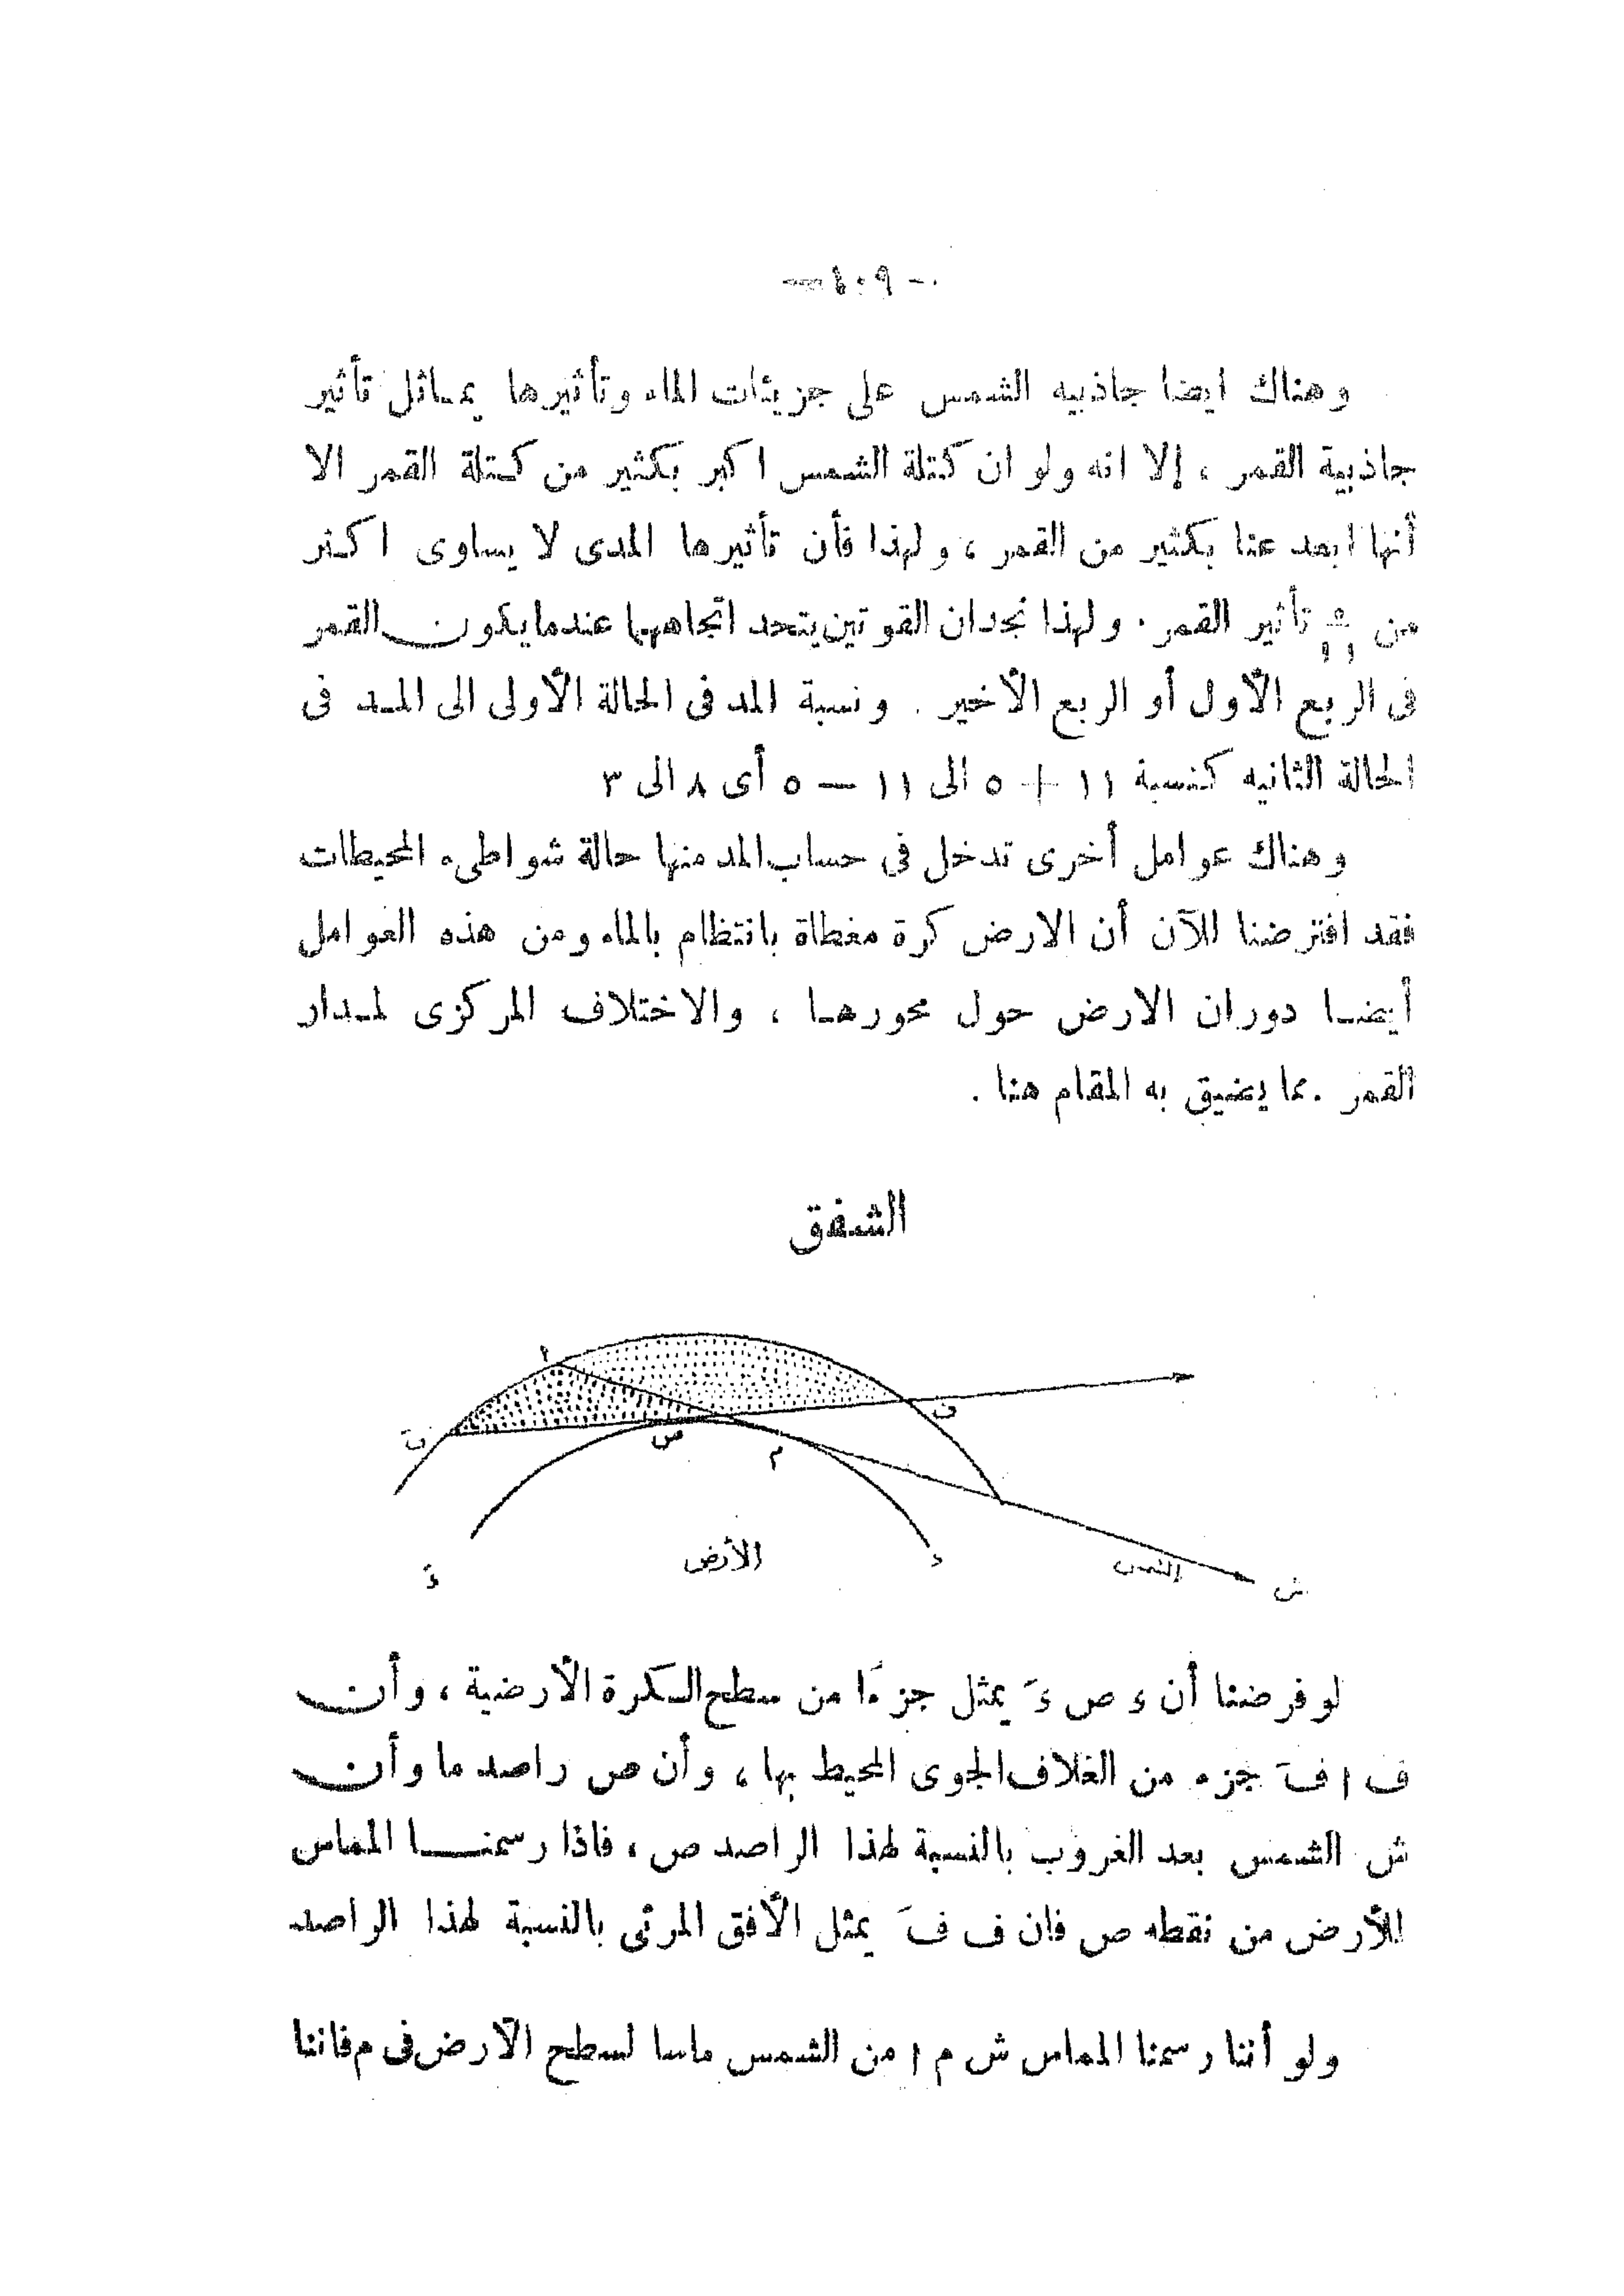 — ٤٠٩ —
وهناك ايضا جاذبيه الشمس على جزيئات الماء وتأثيرها يمـاثل تأثير
جاذبية القمر ، إلا انه ولو ان كتلة الشمس اكبر بكثير من كـتلة القمر الا
أنها ابعد عنا بكثير من القمر ، ولهذا فأن تأثيرها المدى لا يساوى اكـثر
من ٥/١١ تأثير القمر . ولهذا نجدان القوتين يتحد اتجاههما عندما يكون القمر
فى الربع الأول أو الربع الأخير . ونسبة المد فى الحالة الأولى الى المـد فى
الحالة الثانيه كنسبة ١١ + ٥ الى ١١ — ٥ أى ٨ الى ٣
وهناك عوامل أخرى تدخل فى حساب المد منها حالة شواطىء المحيطات
فقد افترضنا للآن أن الارض كرة مغطاة بانتظام بالماء ومن هذه العوامل
أيضـا دوران الارض حول محورهـا ، والاختلاف المركزى لمـدار
القمر . مما يضيق به المقام هنا .
الشفق
ا
ف
فَ
ص
م
الأرض
ء
ءَ
الشمس
ش
لو فرضنا أن ء ص ءَ يمثل جزءًا من سطح الـكرة الأرضية ، وأن
ف ا فَ جزء من الغلاف الجوى المحيط بها ، وأن ص راصد ما وأن
ش الشمس بعد الغروب بالنسبة لهذا الراصد ص ، فاذا رسمنـــا المماس
للأرض من نقطه ص فان ف فَ يمثل الأفق المرئى بالنسبة لهذا الراصد
ولو أننا رسمنا المماس ش م ا من الشمس ماسا لسطح الأرض فى م فاننا